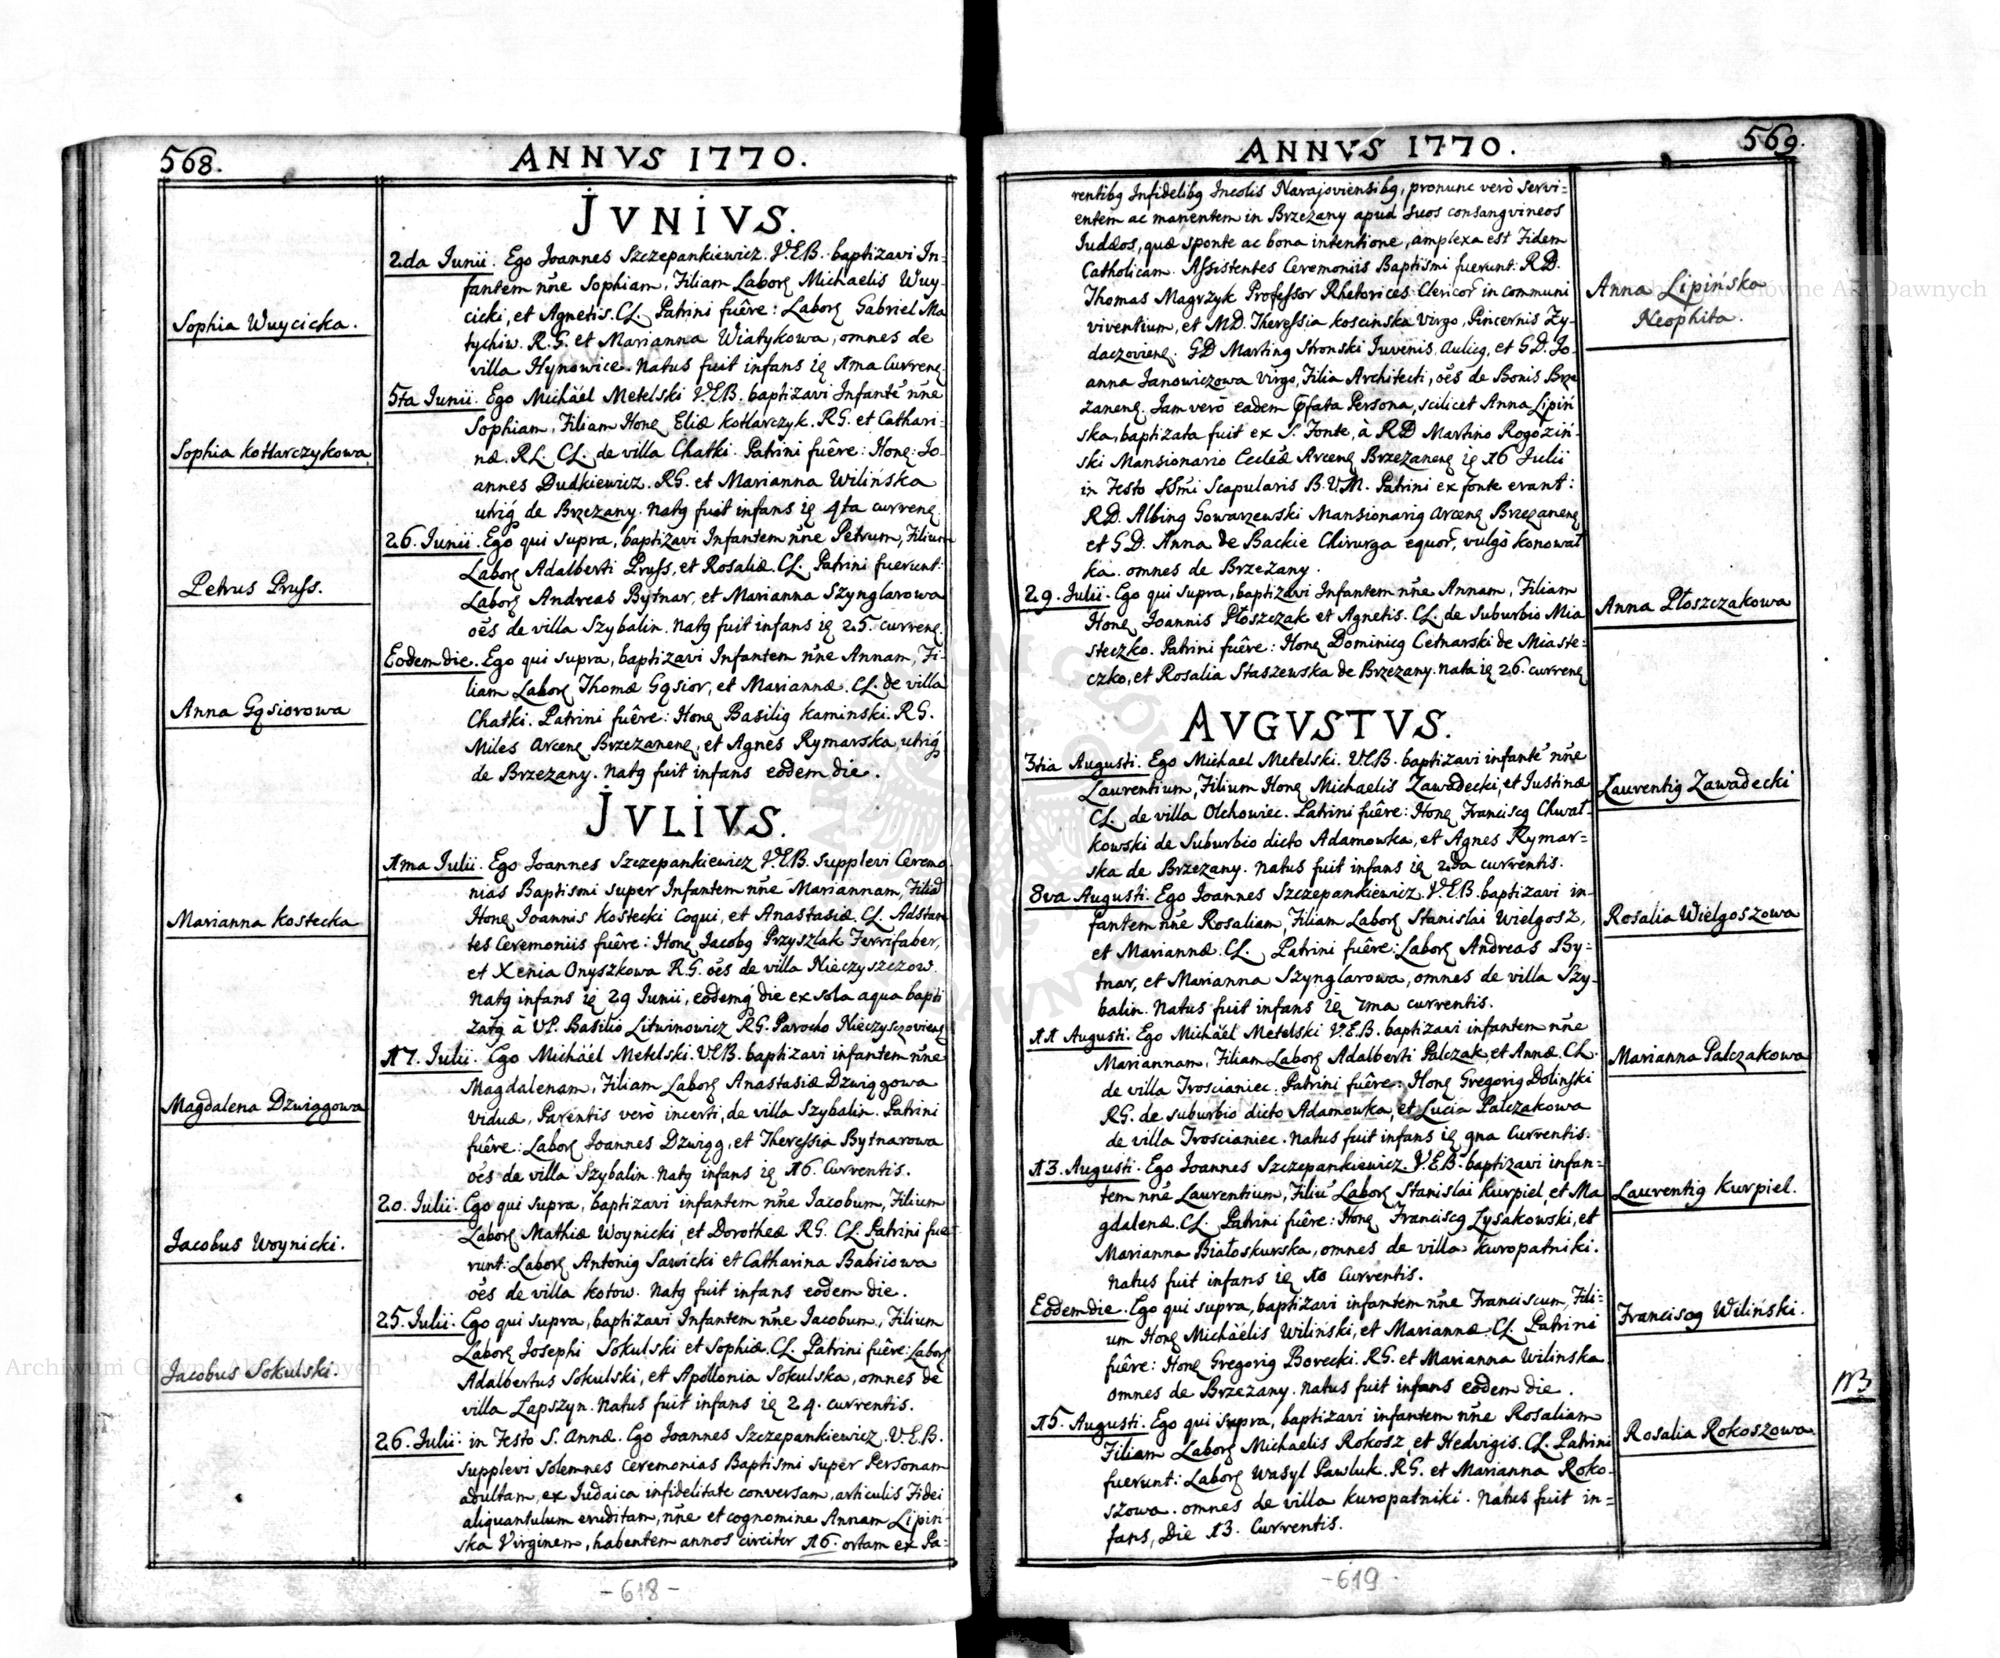 568.
ANNVS 1770.
JVNIVS.
2da Junii. Ego Joannes Szczepankiewicz. V.E.B. baptizavi In-
fantem nñe Sophiam, Filiam Laborꝭ Michaelis Wuy-
cicki, et Agnetis. CL. Patrini fuêre: Laborꝭ Gabriel Ma
Sophia Wuycicka.
tychiw. R.G. et Marianna Wiatykowa, omnes de
villa Hynowice. Natus fuit infans ię 1ma Currenę
5ta Junii. Ego Michäel Metelski V.E.B. baptizavi Infantẽ nñe
Sophiam, Filiam Honę Eliæ Kotlarczyk. RG. et Cathari-
Sophia Kotlarczykowa.
næ. RL. CL. de villa Chatki. Patrini fuêre: Honę Jo-
annes Dudkiewicz. RG. et Marianna Wilińska
utrią de Brzezany. Natę fuit infans ię 4ta currenę.
26. Junii. Ego qui supra, baptizavi Infantem nñe Petrum, Filium
Laborꝭ Adalberti Pruss, et Rosaliæ. CL. Patrini fuerunt:
Petrus Pruss.
Laborꝭ Andreas Bytnar, et Marianna Szynglarowa
oẽs de villa Szybalin. Natę fuit infans ię 25. currenę.
Eodem die. Ego qui supra, baptizavi Infantem nñe Annam, Fi-
liam Laborꝭ Thomæ Gąsior, et Mariannæ. CL. de villa
Anna Gąsiorowa
Chatki. Patrini fuêre: Honę Basilię Kaminski. RG.
Miles Arcenę Brzezanenę, et Agnes Rymarska utrią
de Brzezany. Natę fuit infans eodem die.
JVLIVS.
1ma Julii. Ego Joannes Szczepankiewicz V.E.B. supplevi Ceremo-
nias Baptismi super Infantem nñe Mariannam, Filiã
Marianna Kostecka
Honę Joannis Kostecki Coqui, et Anastasiæ. CL. Adstan
tes Ceremoniis fuêre: Honę Jacobę Przyszlak Ferrifaber,
et Xenia Onyszkowa R.G. oẽs de villa Nieczyszczow.
Natę infans ię 29 Junii, eodemq́ die ex sola aqua bapti
zatę à VP. Basilio Litwinowicz RG. Parocho Nieczyszovienę
17. Julii. Ego Michäel Metelski. V.E.B. baptizavi infantem nñe
Magdalenam, Filiam Laborꝭ Anastasiæ Dzwiggowa
Magdalena Dzwiggowa
Viduæ, Parentis verò incerti, de villa Szybalin. Patrini
fuêre: Laborꝭ Joannes Dzwigg, et Theressia Bytnarowa
oẽs de villa Szybalin. Natę infans ię 16. Currentis.
20. Julii. Ego qui supra, baptizavi infantem nñe Jacobum, Filium
Laborꝭ Mathiæ Woynicki, et Dorotheæ RG. CL. Patrini fue-
Jacobus Woynicki.
runt: Laborꝭ Antonię Sawicki et Catharina Babiiowa
oẽs de villa Kotow. Natę fuit infans eodem die.
25. Julii. Ego qui supra, baptizavi Infantem nñe Jacobum, Filium
Laborꝭ Josephi Sokulski et Sophiæ. CL. Patrini fuêre: Laborꝭ
Jacobus Sokulski.
Adalbertus Sokulski, et Apollonia Sokulska, omnes de
villa Lapszyn. Natus fuit infans ię 24. currentis.
26. Julii. in Festo S. Annæ. Ego Joannes Szczepankiewicz. V.E.B.
supplevi solemnes Ceremonias Baptismi super Personam
adultam, ex Judaica infidelitate conversam, articulis Fidei
aliquantulum eruditam, nñe et cognomine Annam Lipiń
ska Virginem, habentem annos circiter 16. ortam ex Pa-
-618-
ANNVS 1770.
569.
rentibę Infidelibę Incolis Narajoviensibę, pronunc verò servi-
entem ac manentem in Brzezany apud suos consangvineos
Judæos, quæ sponte ac bona intentione, amplexa est Fidem
Catholicam. Assistentes Ceremoniis Baptismi fuerunt: R.D.
Anna Lipińska
Neophita.
Thomas Magrzyk Professor Rhetorices Clericor̃ in communi
viventium, et MD. Theressia Koscinska Virgo, Pincernis Zy-
daczovienę. GD Martinę Stronski Juvenis, Aulicę, et G.D. Jo-
anna Janowiczowa Virgo, Filia Architecti, oẽs de Bonis Brze
zanenę. Jam verò eadem p̃fata Persona, scilicet Anna Lipiń
ska, baptizata fuit ex S. Fonte, à RD Martino Rogoziń-
ski Mansionario Eccl̃æ Arcenę Brzezanenę ię 16 Julii
in Festo SSmi Scapularis B.V.M. Patrini ex fonte erant:
R.D. Albinę Gowarzewski Mansionarię Arcenę Brzezanenę
et G.D. Anna de Backie Chirurga equor̃, vulgò Konowal
ka. omnes de Brzezany.
29. Julii. Ego qui supra, baptizavi Infantem nñe Annam, Filiam
Honę Joannis Płoszczak et Agnetis. CL. de Suburbio Mia
Anna Płoszczakowa
steczko. Patrini fuêre: Honę Dominicę Cetnarski de Miaste-
czko, et Rosalia Staszewska de Brzezany. Nata ię 26. currenę
AVGVSTVS.
3tia Augusti. Ego Michael Metelski. V.E.B. baptizavi infantẽ nñe
Laurentium, Filium Honę Michaelis Zawadecki, et Justinæ
Laurentię Zawadecki
CL. de villa Olchowiec. Patrini fuêre: Honę Franciscę Chwał-
kowski de Suburbio dicto Adamowka, et Agnes Rymar-
ska de Brzezany. Natus fuit infans ię 2da currentis.
8va Augusti. Ego Joannes Szczepankiewicz. V.E.B. baptizavi in-
fantem nñe Rosaliam, Filiam Laborꝭ Stanislai Wielgosz,
Rosalia Wielgoszowa
et Mariannæ. CL. Patrini fuêre: Laborꝭ Andreas By-
tnar, et Marianna Szynglarowa, omnes de villa Szy-
balin. Natus fuit infans ię 7ma currentis.
11 Augusti. Ego Michäel Metelski V.E.B. baptizavi infantem nñe
Mariannam, Filiam Laborꝭ Adalberti Palczak, et Annæ. CL.
Marianna Palczakowa
de villa Troscianiec. Patrini fuêre: Honę Gregorię Dolinski
RG. de suburbio dicto Adamowka, et Lucia Palczakowa
de villa Troscianiec. Natus fuit infans ię 9na Currentis.
13. Augusti. Ego Joannes Szczepankiewicz. V.E.B. baptizavi infan-
tem nñe Laurentium, Filiũ Laborꝭ Stanislai Kurpiel, et Ma
Laurentię Kurpiel.
gdalenæ. CL. Patrini fuêre: Honę Franciscę Lysakowski, et
Marianna Białoskurska, omnes de villa Kuropatniki.
Natus fuit infans ię 10 Currentis.
Eodem die. Ego qui supra, baptizavi infantem nñe Franciscum, Fili-
Franciscę Wiliński.
um Honę Michäelis Wiliński, et Mariannæ. CL. Patrini
fuêre: Honę Gregorię Borecki. RG. et Marianna Wilinska
omnes de Brzezany. Natus fuit infans eodem die.
NB
15. Augusti. Ego qui supra, baptizavi infantem nñe Rosaliam
Filiam Laborꝭ Michaelis Rokosz, et Hedvigis. CL. Patrini
Rosalia Rokoszowa
fuerunt: Laborꝭ Wasyl Pawluk. RG. et Marianna Roko-
szowa. omnes de villa Kuropatniki. Natus fuit in-
fans, Die 13. Currentis.
-619-
Archiwum Główne Akt Dawnych